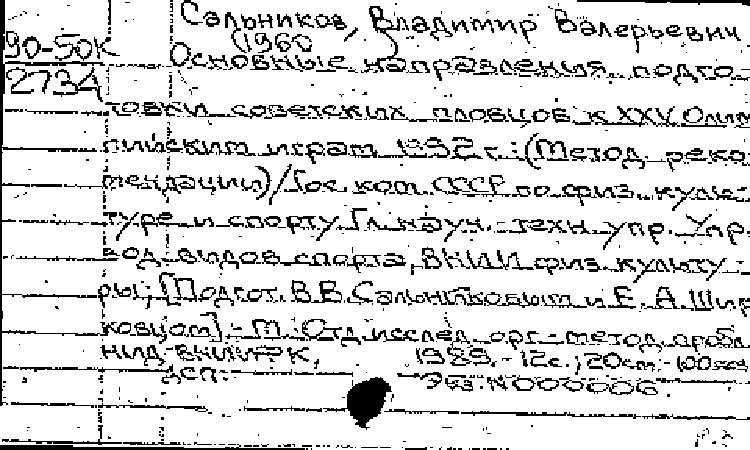 Сальников, Владимир Валерьевич
(1960
90-50к
2734
Основные направления подго-
товки советских пловцов к XXV Олим
пийским играм 1992 г.: (Метод. реко
мендации) / Гос. ком. СССР по физ. куль-
туре и спорту. Гл. науч.-техн. упр. Упр.
вод. видов спорта, ВНИИ физ. культу-
ры; [Подгот. В.В. Сальниковым и Е. А. Шир
ковцом]. - М.: Отд. исслед. орг.-метод. пробл.
НИД ВНИИФК, 1989. - 12с.; 20см. - 100экз
дсп.
Экз. N000006.